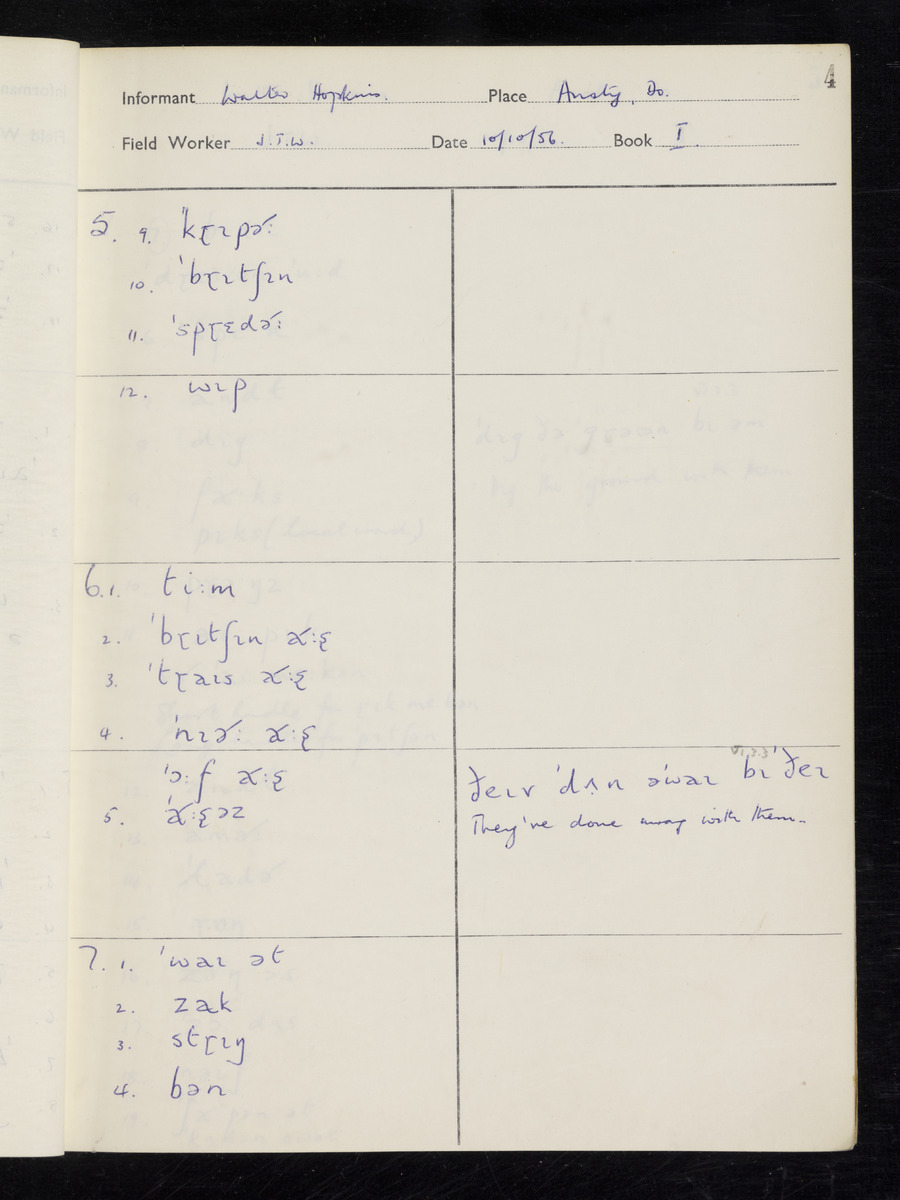 4
Informant Walter Hopkins. Place Ansty, Do.
Field Worker J.T.W. Date 10/10/56. Book I.
5. 9. ˈkɽɪpə́ː
10. ˈbɽɪtʃɪn
11. ˈspɽɛdə́ː
12. wɪp
6.1. tiːm
2. ˈbɽɪtʃɪn
3. ˈtɽaɪs
4. ˈnɪə́ː
ˈɔːf
5.
ðeɪv ˈdʌn əˈwaɪ bɪ ˈðeɪ
They've done away with them.
7. 1. ˈwaɪ ət
2. zak
3. stɽɪŋ
4. bən